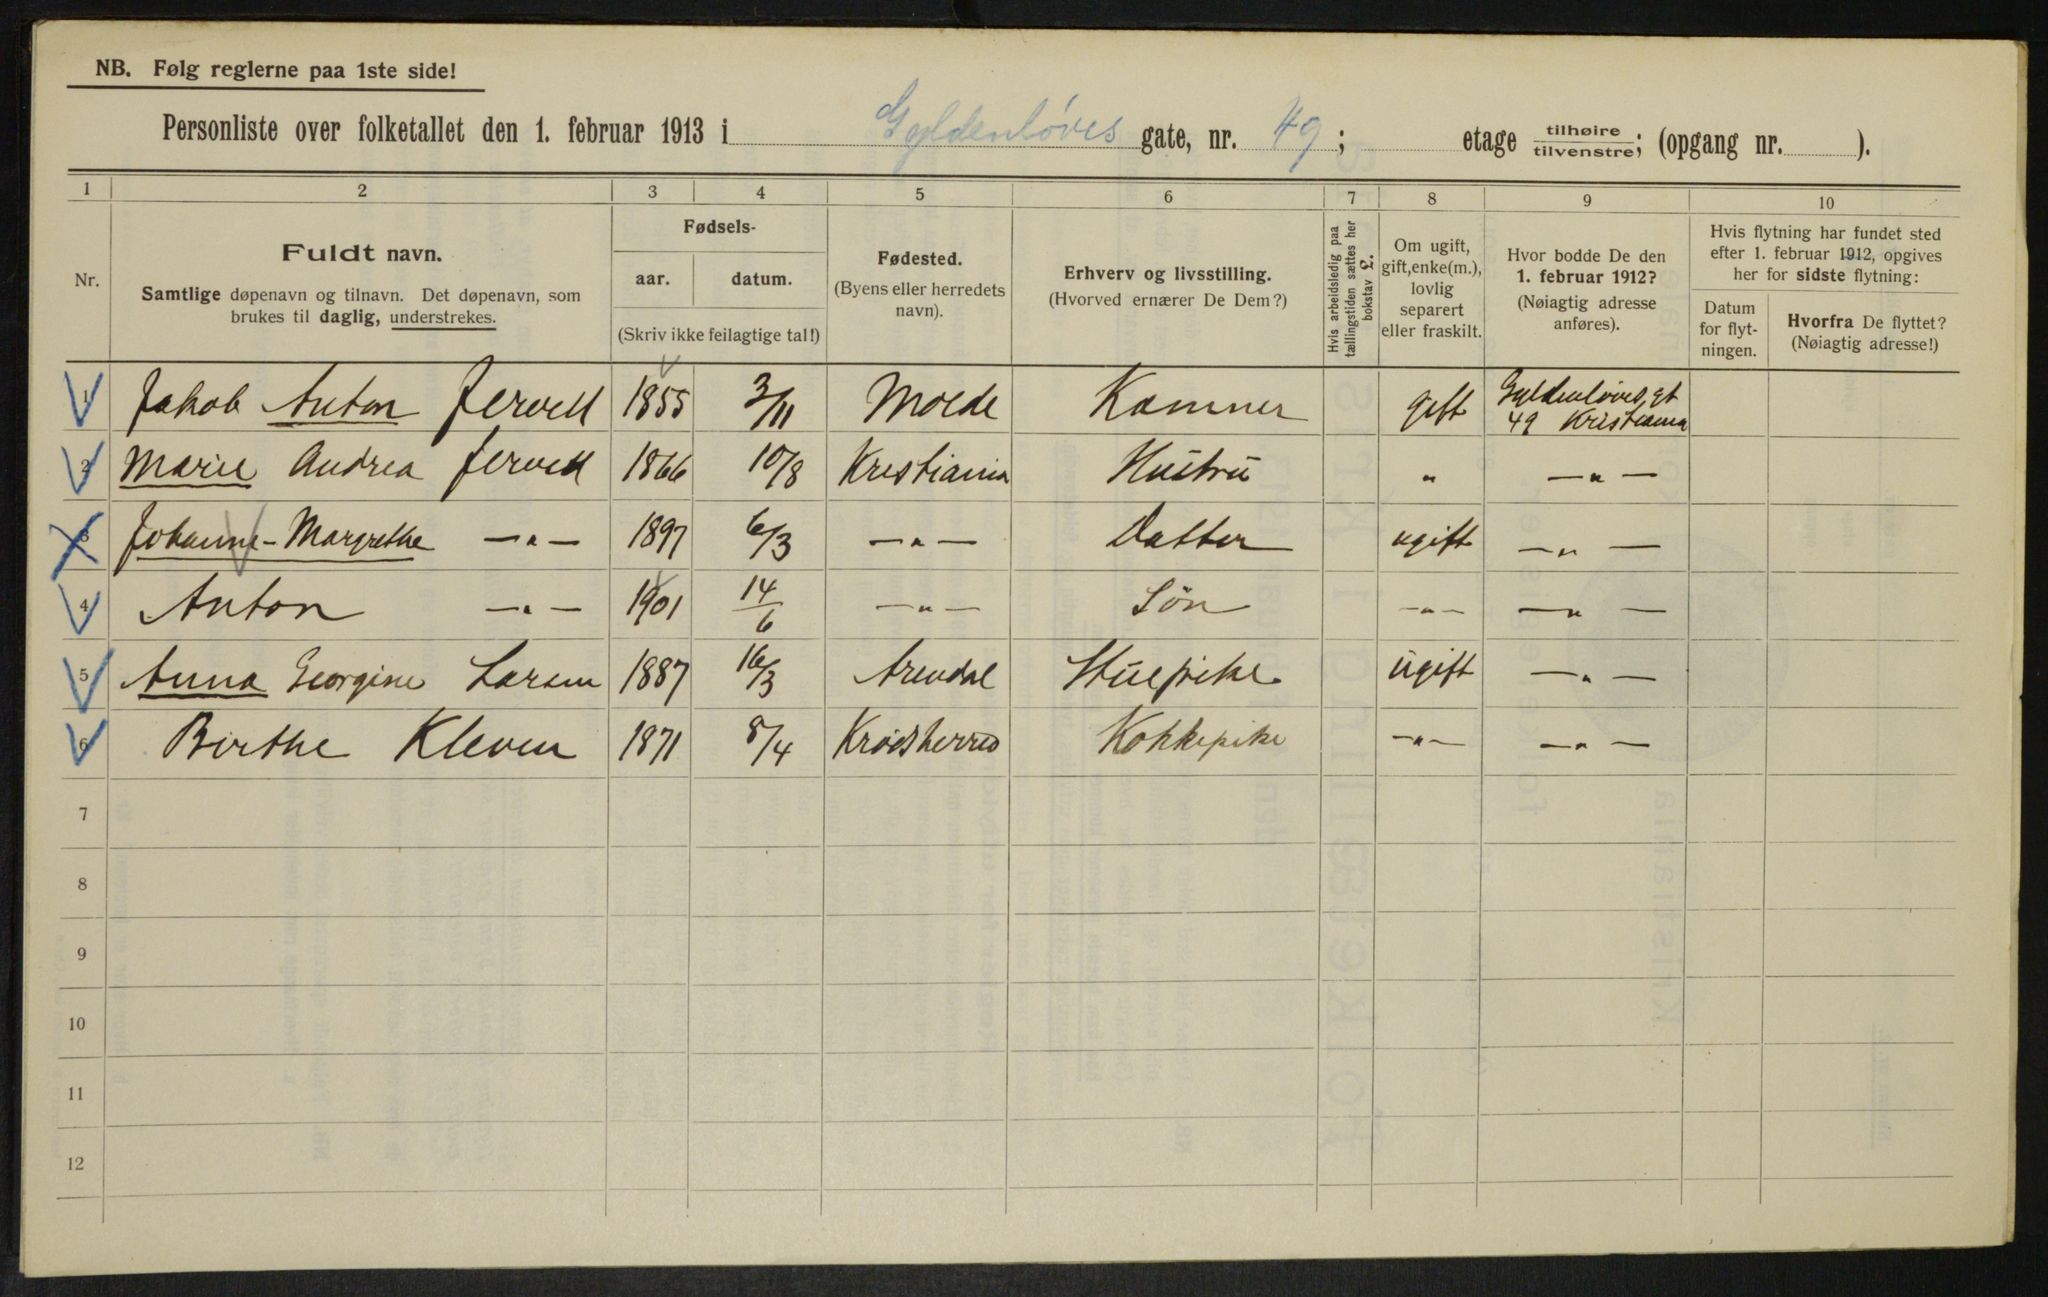 NB. Følg reglerne paa 1ste side!
Personliste over folketallet den 1. februar 1913 i Gyldenløves gate, nr. 49; etage tilhøire tilvenstre; (opgang nr. ).
1 2 3 4 5 6 7 8 9 10
Nr.
Fuldt navn.
Samtlige døpenavn og tilnavn. Det døpenavn, som
brukes til daglig, understrekes.
Fødsels-
aar. datum.
(Skriv ikke feilagtige tal!)
Fødested.
(Byens eller herredets
navn).
Erhverv og livsstilling.
(Hvorved ernærer De Dem?)
Hvis arbeidsledig paa
tællingstiden sættes her
bokstav £.
Om ugift,
gift, enke(m.),
lovlig
separert
eller fraskilt.
Hvor bodde De den
1. februar 1912?
(Nøiagtig adresse
anføres).
Hvis flytning har fundet sted
efter 1. februar 1912, opgives
her for sidste flytning:
Datum
for flyt-
ningen.
Hvorfra De flyttet?
(Nøiagtig adresse!)
1 Jakob Anton Jervell 1855 3/11 Molde Kæmner gift Gyldenløves gt
49 Kristiania
2 Marie Andrea Jervell 1866 10/8 Kristiania Hustru " —"—
3 Johanne-Margrethe —"— 1897 6/3 —"— Datter ugift —"—
4 Anton —"— 1901 14/6 —"— Søn —"— —"—
5 Anna Georgine Larsen 1887 16/3 Arendal Stuepike ugift —"—
6 Birthe Kleven 1871 8/4 Krødsherred Kokkepike —"— —"—
7
8
9
10
11
12